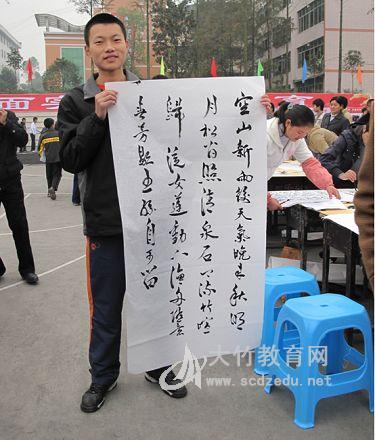 空山新雨後天氣晚来秋明
月松间照清泉石上流竹喧
歸浣女蓮動下漁舟随意
春芳歇王孫自可留
大竹教育网
www.scdzedu.net